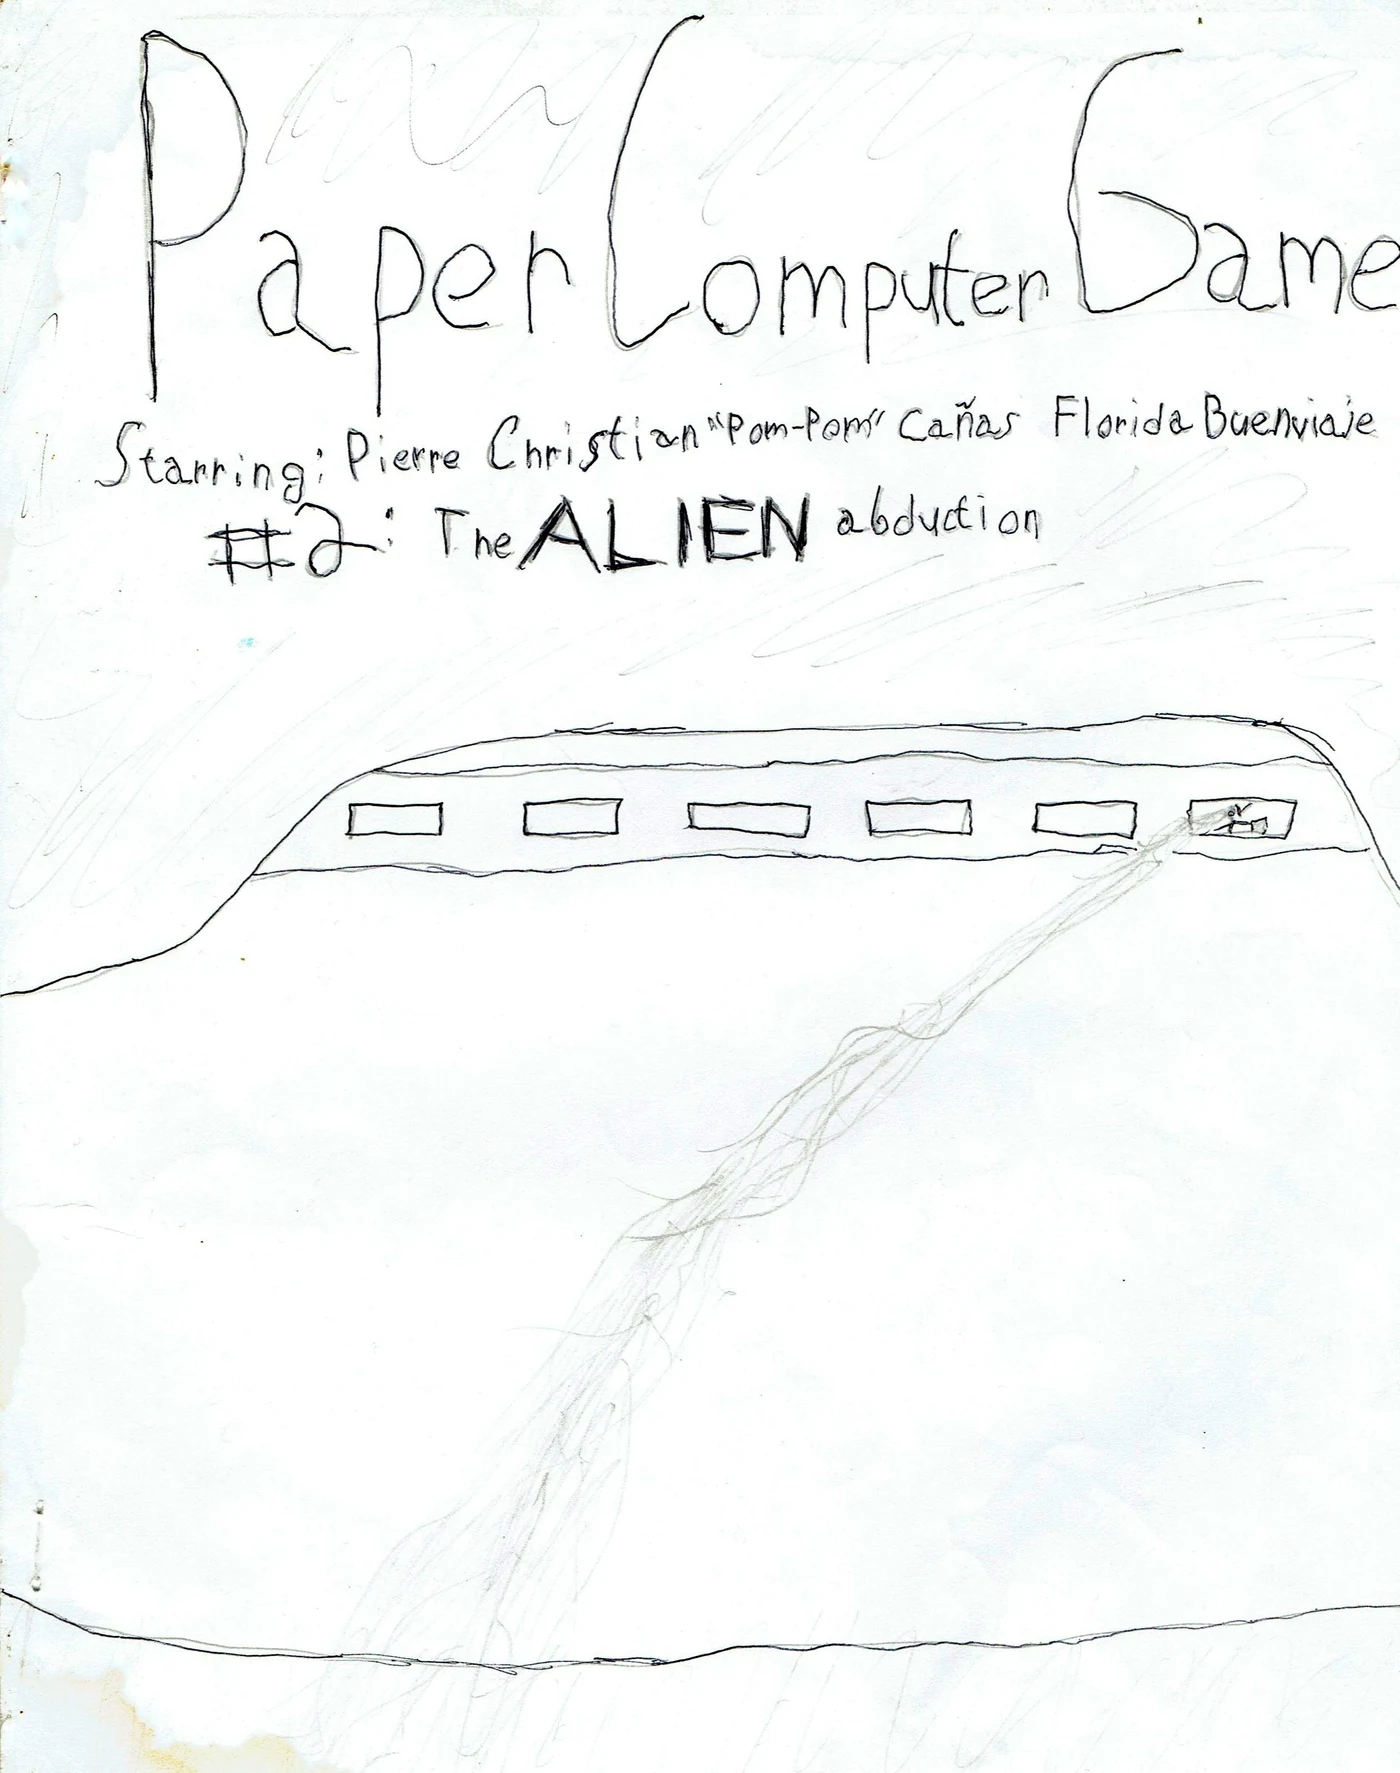 Paper Computer Game
Starring: Pierre Christian "Pom-Pom" Cañas Florida Buenviaje
#2: The ALIEN abduction